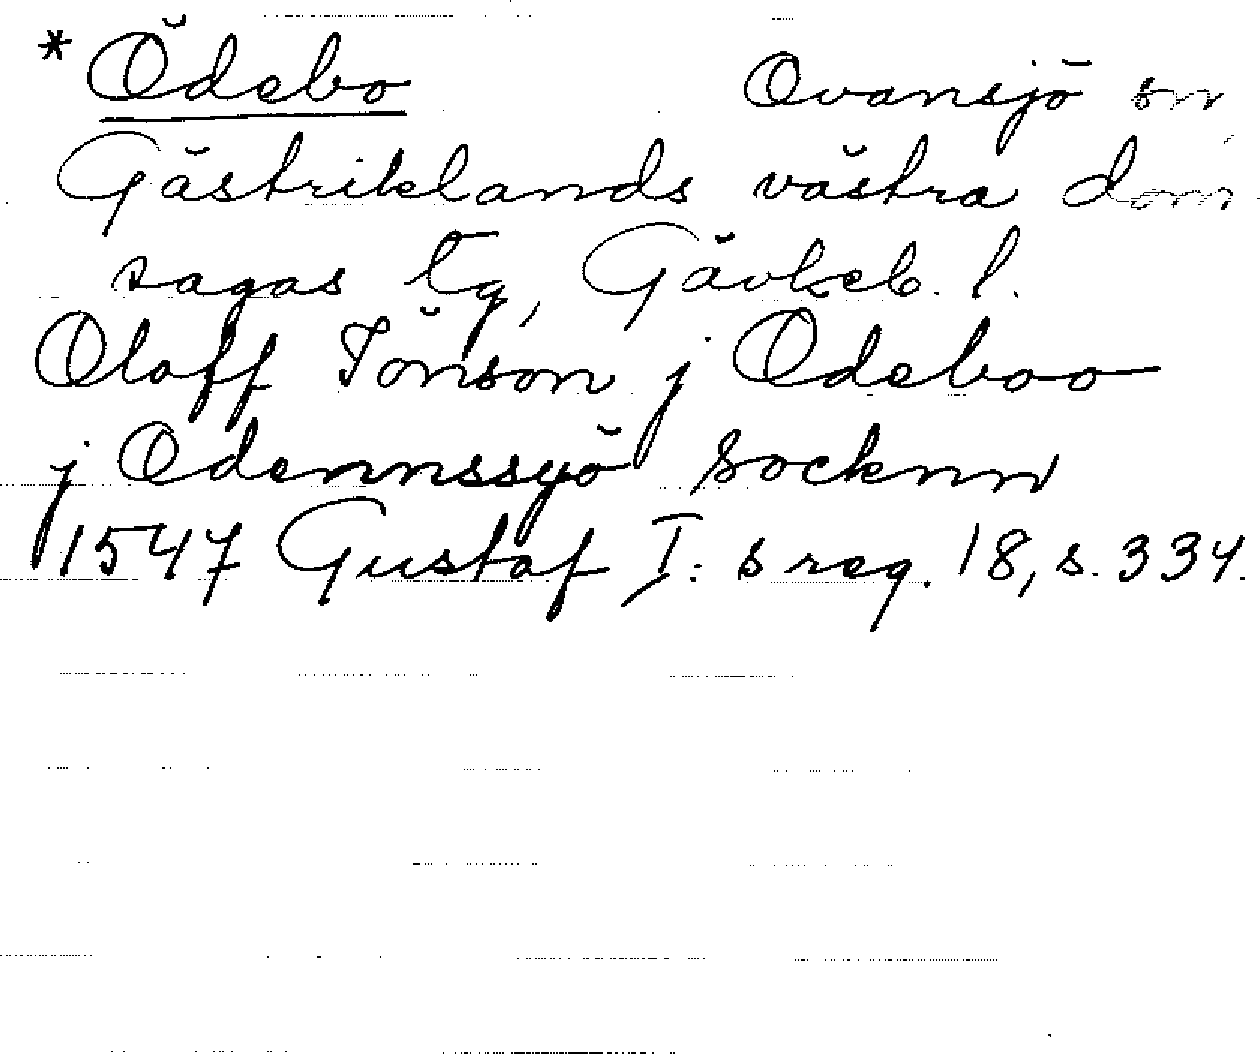 * Ödebo Ovansjö sn
Gästriklands västra dom
sagas tg, Gävleb. l.
Oloff Jönson j Odeboo
j Odennssyö Socknn
1547 Gustaf I:s reg. 18, s. 334.